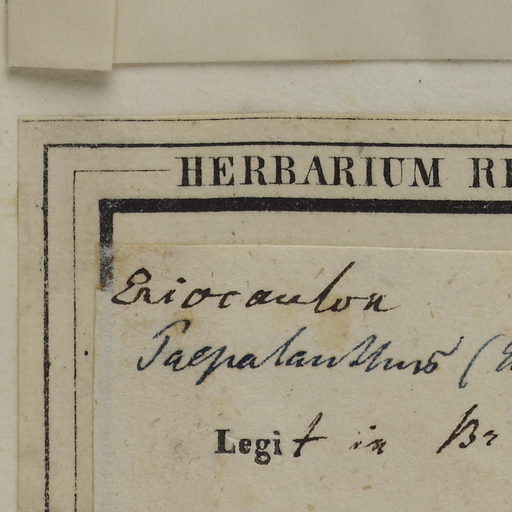 HERBARIUM
Eriocaulon
Paepalanthus (
Legit in